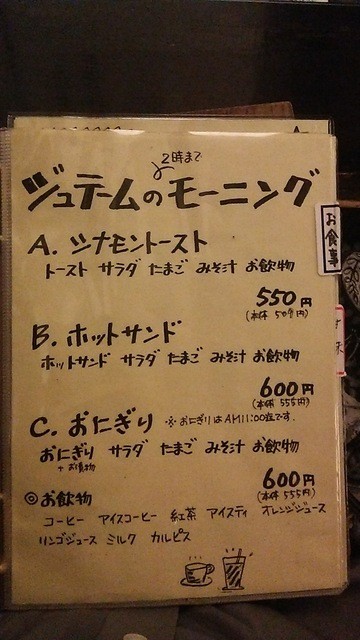 2時まで
ジュテームのモーニング
お食事
A. シナモントースト
トースト サラダ たまご みそ汁 お飲物
550円
(本体 509円)
B. ホットサンド
ホットサンド サラダ たまご みそ汁 お飲物
600円
(本体 555円)
C. おにぎり ※おにぎりはAM11:00迄です。
おにぎり サラダ たまご みそ汁 お飲物
+お漬物
600円
(本体 555円)
◎お飲物
コーヒー アイスコーヒー 紅茶 アイスティ オレンジジュース
リンゴジュース ミルク カルピス